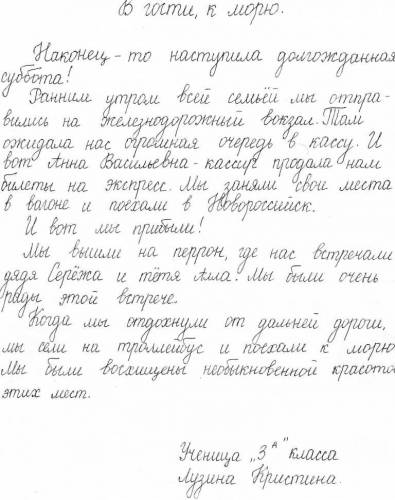 В гости, к морю.
Наконец-то наступила долгожданная
суббота!
Ранним утром всей семьёй мы отпра-
вились на железнодорожный вокзал. Там
ожидала нас огромная очередь в кассу. И
вот Анна Васильевна-кассир продала нам
билеты на экспресс. Мы заняли свои места
в вагоне и поехали в Новороссийск.
И вот мы прибыли!
Мы вышли на перрон, где нас встречали
дядя Серёжа и тётя Алла. Мы были очень
рады этой встрече.
Когда мы отдохнули от дальней дороги,
мы сели на троллейбус и поехали к морю
Мы были восхищены необыкновенной красото
этих мест.
Ученица „3А" класса
Лузина Кристина.